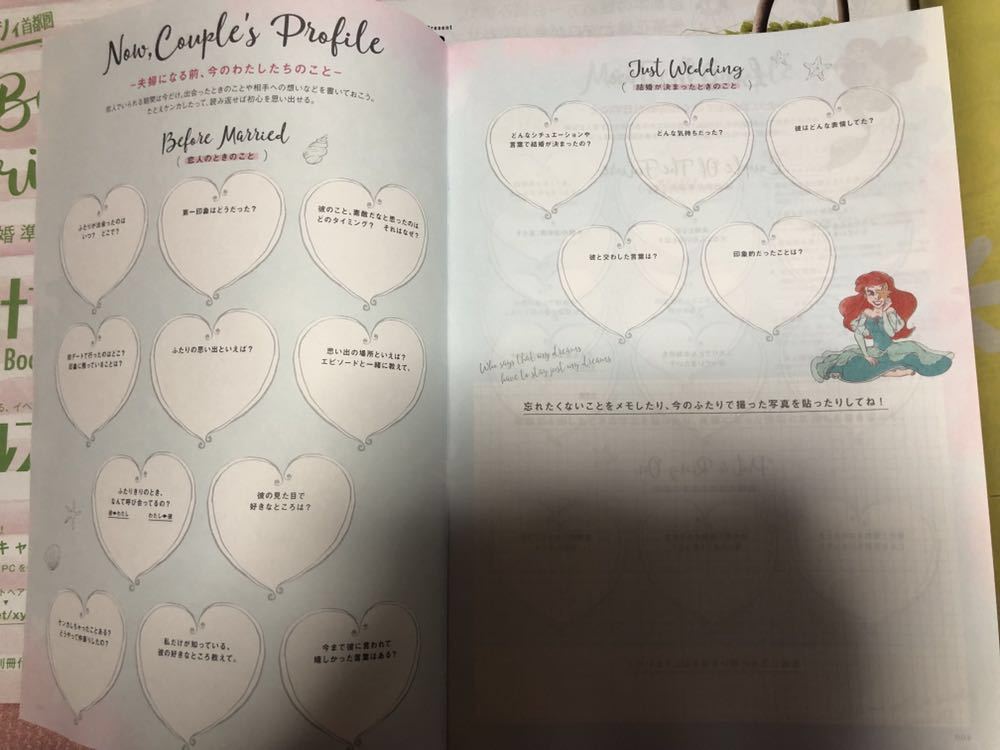 Now, Couple's Profile
−夫婦になる前、今のわたしたちのこと−
恋人でいられる期間は今だけ。出会ったときのことや相手への想いなどを書いておこう。
たとえケンカしたって、読み返せば初心を思い出せる。
Before Married
(恋人のときのこと)
ふたりが出会ったのは
いつ? どこで?
第一印象はどうだった?
彼のこと、素敵だなと思ったのは
どのタイミング? それはなぜ?
初デートで行ったのはどこ?
印象に残っていることは?
ふたりの思い出といえば?
思い出の場所といえば?
エピソードと一緒に教えて。
ふたりきりのとき、
なんて呼び合ってるの?
彼➡わたし わたし➡彼
彼の見た目で
好きなところは?
ケンカしちゃったことある?
どうやって仲直りしたの?
私だけが知っている、
彼の好きなところ教えて。
今まで彼に言われて
嬉しかった言葉はある?
Just Wedding
(結婚が決まったときのこと)
どんなシチュエーションや
言葉で結婚が決まったの?
どんな気持ちだった?
彼はどんな表情してた?
彼と交わした言葉は?
印象的だったことは?
Who says that my dreams
have to stay just my dreams
忘れたくないことをメモしたり、今のふたりで撮った写真を貼ったりしてね!
ィ首都圏
Present
婚準
Boo
る、イベ
キャ
PCを
トヘア
▼
et/xy
別冊付